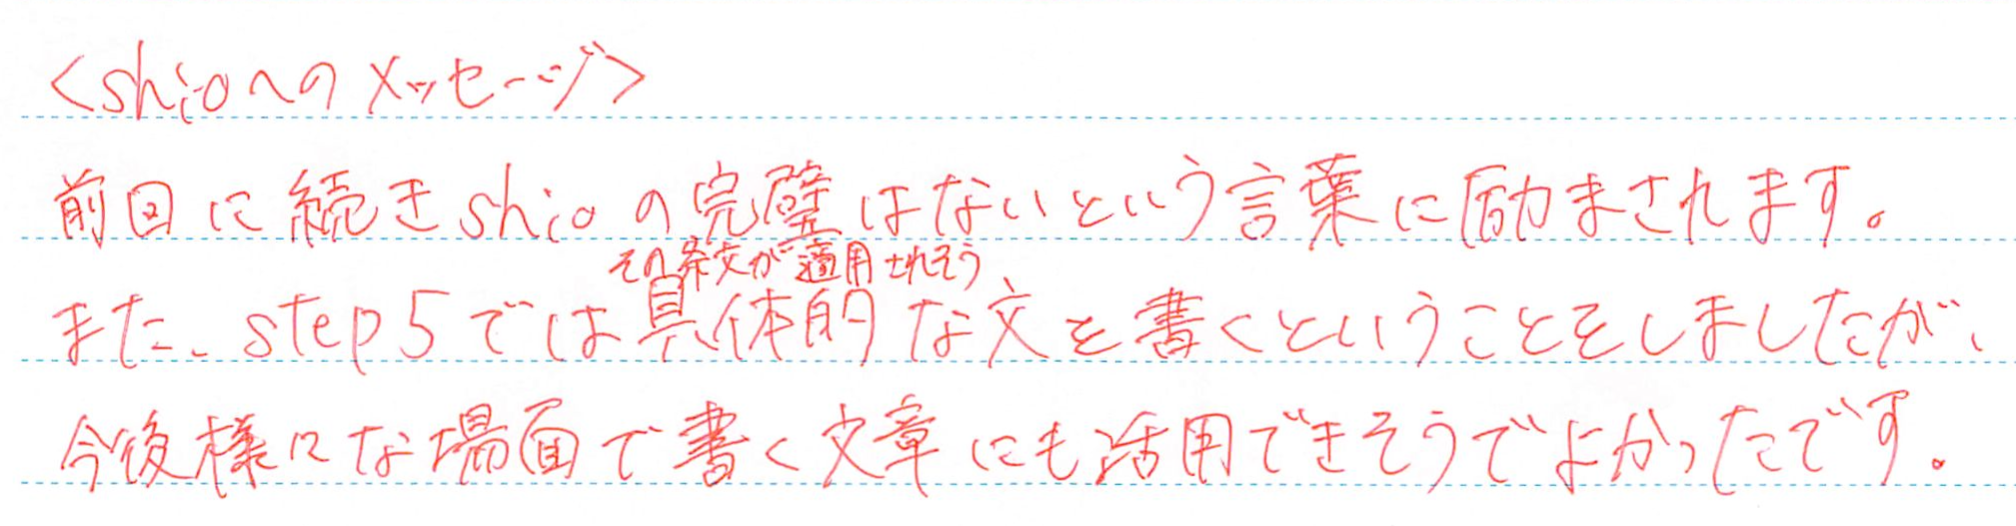 <shioへのメッセージ>
前回に続きshioの完璧はないという言葉に励まされます。
その条文が適用されそう
また、step5では具体的な文を書くということをしましたが、
今後様々な場面で書く文章にも活用できそうでよかったです。